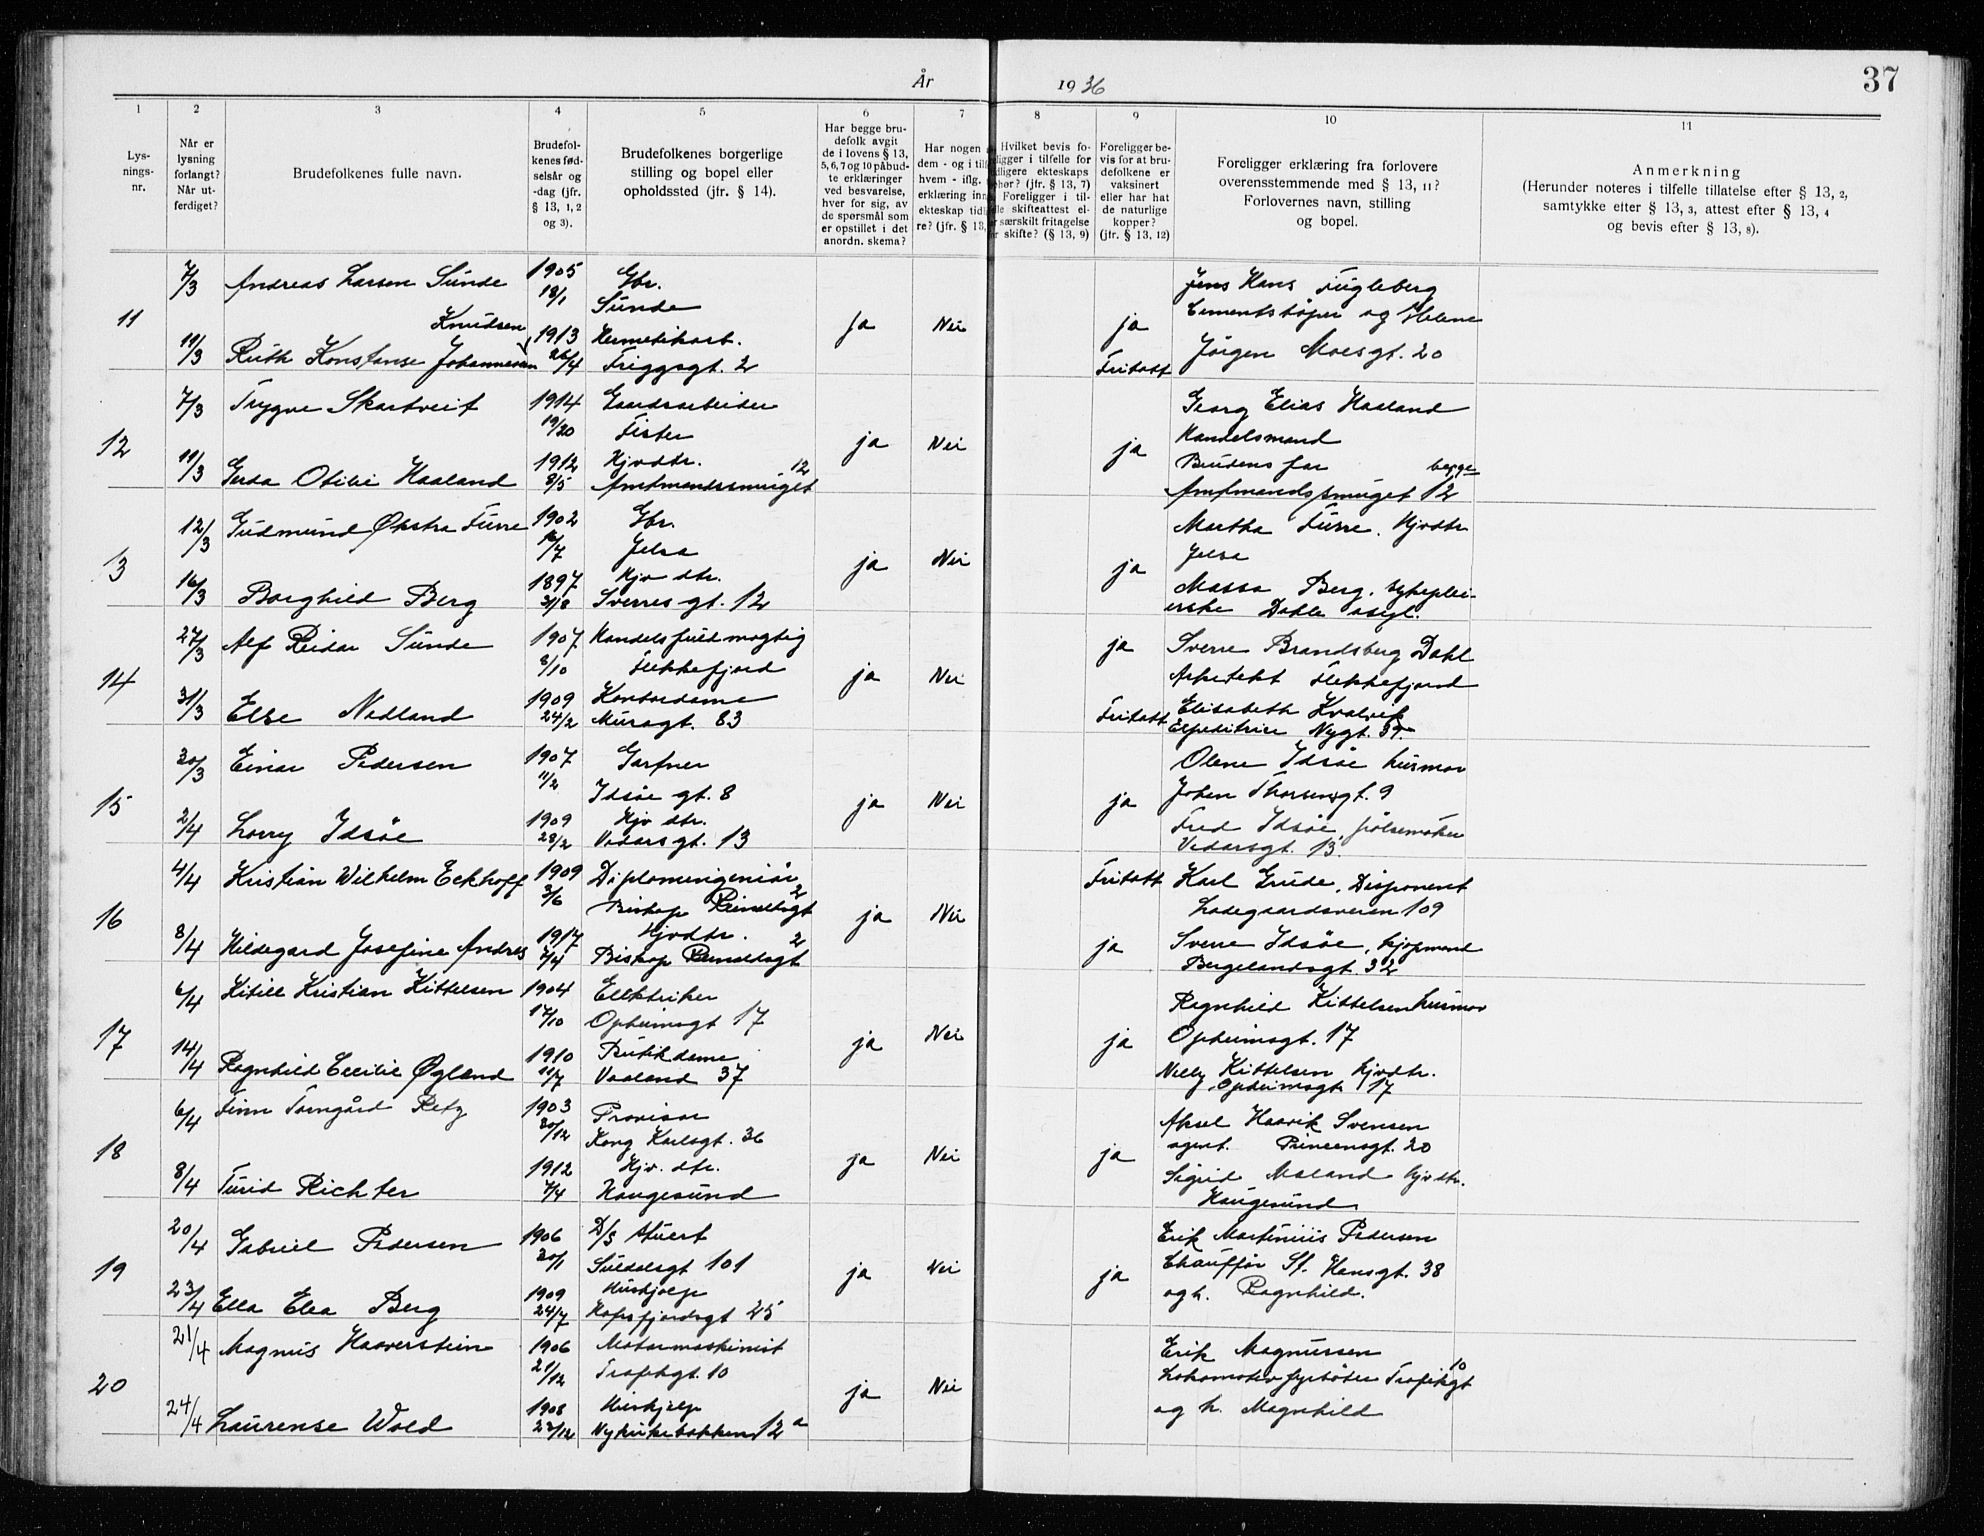 År 1936
37
1 2 3 4 5 6 7 8 9 10 11
Lys-
nings-
nr.
Når er
lysning
forlangt?
Når ut-
ferdiget?
Brudefolkenes fulle navn.
Brudefol-
kenes fød-
selsår og
-dag (jfr.
§ 13, 1, 2
og 3).
Brudefolkenes borgerlige
stilling og bopel eller
opholdssted (jfr. § 14).
Har begge bru-
defolk avgit
de i lovens § 13,
5, 6, 7 og 10 påbud-
te erklæringer
ved besvarelse,
hver for sig, av
de spørsmål som
er opstillet i det
anordn. skema?
Har nogen
dem - og i til
hvem - iflg.
erklæring inn
ekteskap tidl
re? (jfr. § 13,
Hvilket bevis fo-
ligger i tilfelle for
dligere ekteskaps
phør? (jfr. § 13, 7)
Foreligger i til-
lle skifteattest el-
r særskilt fritagelse
r skifte? (§ 13, 9)
Foreligger be-
vis for at bru-
defolkene er
vaksinert
eller har hat
de naturlige
kopper?
(jfr. § 13, 12)
Foreligger erklæring fra forlovere
overensstemmende med § 13, 11?
Forlovernes navn, stilling
og bopel.
Anmerkning
(Herunder noteres i tilfelle tillatelse efter § 13, 2,
samtykke efter § 13, 3, attest efter § 13, 4
og bevis efter § 13, 8).
11
7/3 Andreas Larsen Sunde 1905 18/1 Gbr. Sunde
Knudsen
11/3 Ruth Konstanse Johannesen 1913 26/4 Hermetikarb. Friggsgt. 2
Ja Nei ja Fritatt
Jens Hans Fugleberg
Cementstøper og Helene
Jørgen Moesgt. 20
12
7/3 Trygve Skartveit 1914 19/20 Gaardsarbeider Fister
11/3 Gerda Otilie Haaland 1912 8/5 Hjvdtr. Amtmandssmuget 12
ja Nei ja
Georg Elias Haaland
Handelsmand
Brudens far begge
Amtmandssmuget 12
3
12/3 Gudmund Økstra Furre 1902 /7 Gbr. Jelsa
16/3 Borghild Berg 1897 31/8 Hjv dtr. Sverresgt. 12
ja Nei ja
Martha Furre. Hjvdtr
Jelsa
Massa Berg. sykeplei-
erske Dahle asyl.
14
27/3 Alf Reidar Sunde 1907 8/10 Handelsfuldmægtig Flekkefjord
31/3 Else Nedland 1909 24/2 Kontordame Muragt. 83
ja Nei ja Fritatt
Sverre Brandsberg Dahl
Arkitekt Flekkefjord
Elisabeth Kvalvik
Expeditrice Nygt. 37
15
30/3 Einar Pedersen 1907 11/2 Gartner Idsøe gt. 8
2/4 Lorry Idsøe 1909 28/2 Hjv dtr. Vidarsgt. 13
ja Nei ja
Olene Idsøe husmor
Johan Thorsensgt. 9
Fred Idsøe, pølsemaker
Vidarsgt. 13.
16
4/4 Kristian Wilhelm Eckhoff 1909 3/6 Diplomingeniør Biskop Reinaldsgt 2
8/4 Hildegard Josefine Andres 1917 7/4 Hjvdtr. Biskop Reinaldsgt 2
ja Nei Fritatt ja
Karl Grude, Disponent
Ladegaardsveien 109
Sverre Idsøe, kjøpmand
Bergelandsgt. 32
17
6/4 Kitill Kristian Kittelsen 1904 17/10 Elektriker Opheimsgt 17
14/4 Ragnhild Cecilie Øgland 1910 11/7 Butikdame Vaaland 37
ja Nei ja
Ragnhild Kittelsen husmor
Opheimsgt. 17
Nelly Kittelsen hjvdtr.
Opheimsgt 17
18
6/4 Finn Tomgård Retz 1903 20/12 Provisor Kong Karlsgt. 36
8/4 Turid Richter 1912 7/4 Hjv. dtr. Haugesund
ja Nei ja
Aksel Haavik Svensen
agent. Prinsensgt. 20
Sigrid Maland hjvdtr.
Haugesund
19
20/4 Gabriel Pedersen 1906 20/1 D/s stuert Suldalsgt 101
23/4 Ella Elea Berg 1909 24/7 Hushjelp Hafrsfjordsgt 25
ja Nei ja
Erik Martinius Pedersen
Chauffør St. Hansgt. 38
og h. Ragnhild.
20
21/4 Magnus Haaverstein 1906 21/12 Motormaskinist Trafikgt. 10
24/4 Laurense Wold 1908 23/12 Hushjelp Nykirkebakken 12a
ja Nei
Erik Magnussen
Lokomotivfyrbøter Trafikgt 10
og h. Magnhild